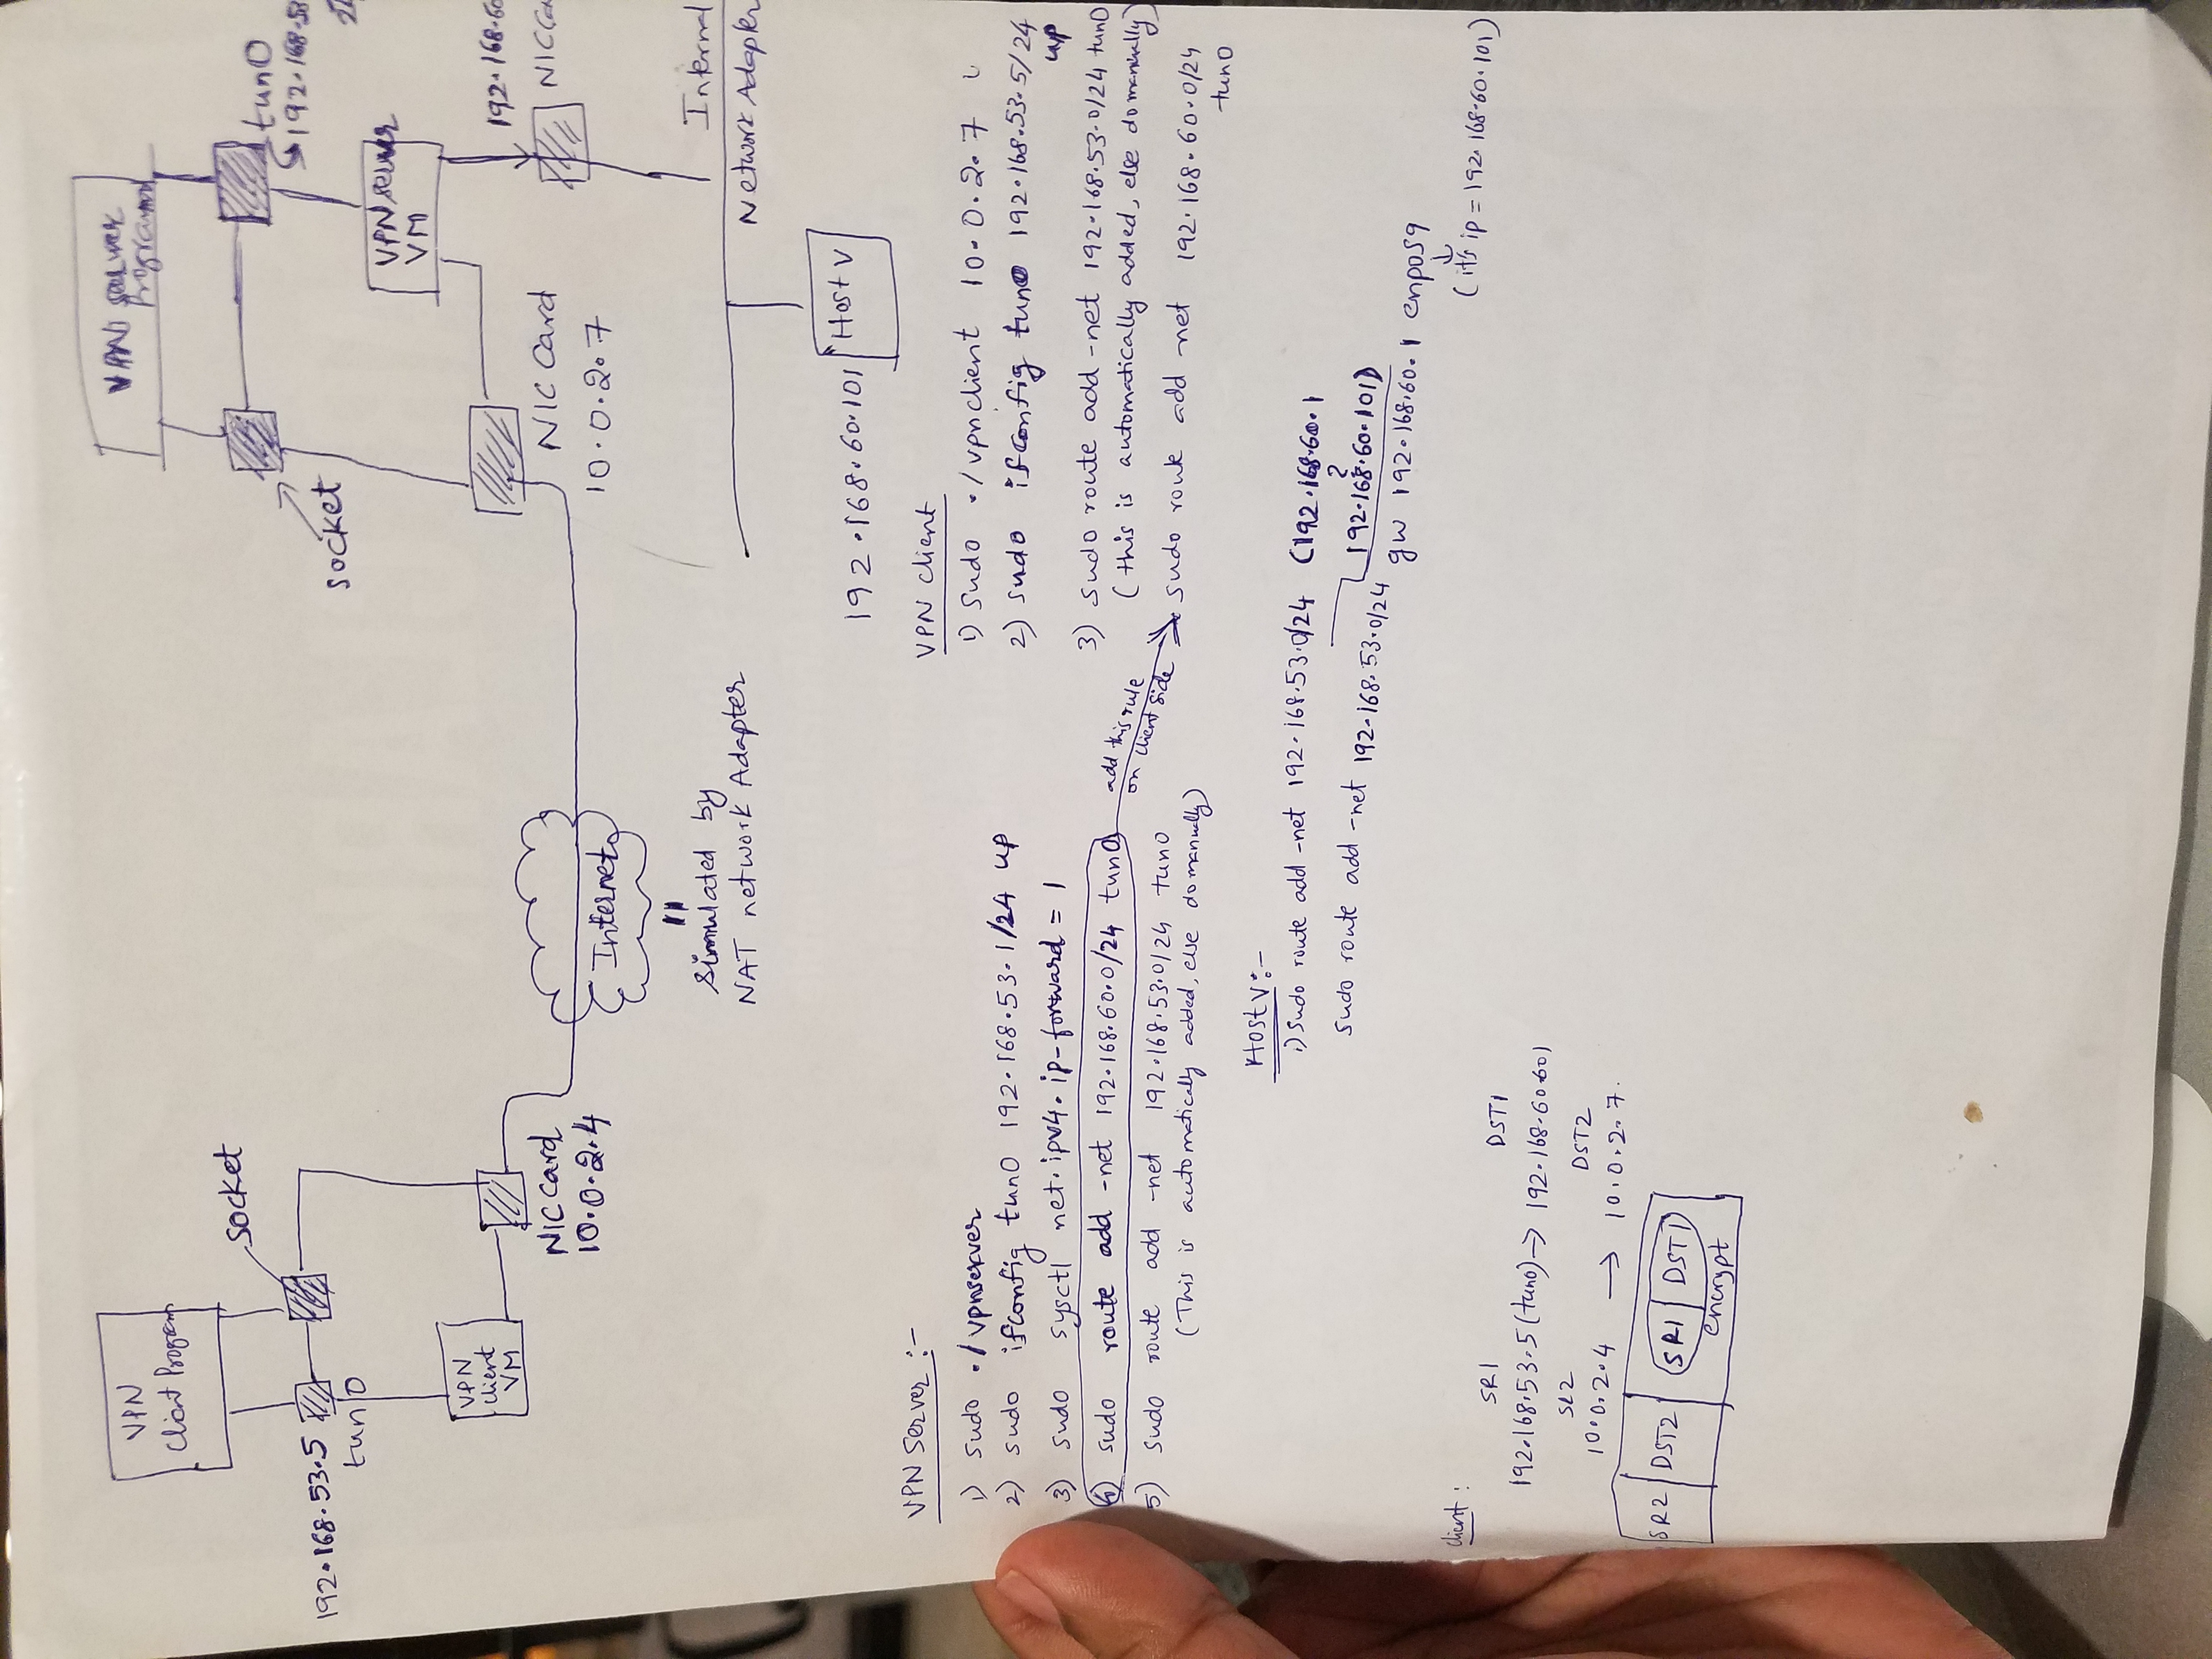 VPN
Client Program
socket
192.168.53.5
tun0
VPN
client
VM
NIC Card
10.0.2.4
Internet
Simulated by
NAT network Adapter
VPN server
Program
tun0
192.168.53
socket
VPN server
VM
192.168.60
NIC Card
10.0.2.7
NIC Ca
Internal
Network Adapter
192.168.60.101
Host V
VPN Server :-
1) sudo ./vpnserver
2) sudo ifconfig tun0 192.168.53.1/24 up
3) sudo sysctl net.ipv4.ip-forward = 1
4) sudo route add -net 192.168.60.0/24 tun0
add this rule
on client side
5) sudo route add -net 192.168.53.0/24 tun0
(This is automatically added, else do manually)
VPN client
1) sudo ./vpnclient 10.0.2.7
2) sudo ifconfig tun0 192.168.53.5/24
up
3) sudo route add -net 192.168.53.0/24 tun0
(this is automatically added, else do manually)
sudo route add -net 192.168.60.0/24
tun0
Host V :-
1) sudo route add -net 192.168.53.0/24 (192.168.60.1
?
192.168.60.101)
sudo route add -net 192.168.53.0/24
gw 192.168.60.1 enp0s9
(it's ip = 192.168.60.101)
client :
SR1 DST1
192.168.53.5 (tun0) → 192.168.60.601
SR2 DST2
10.0.2.4 → 10.0.2.7.
SR2 DST2 SR1 DST1
encrypt